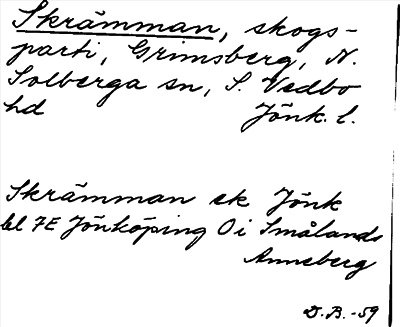 Skrämman, skogs-
parti, Grimsberg, N.
Solberga sn, S. Vedbo
hd Jönk. l.
Skrämman ek Jönk
bl 7E Jönköping O i Smålands
Anneberg
D.B.-59